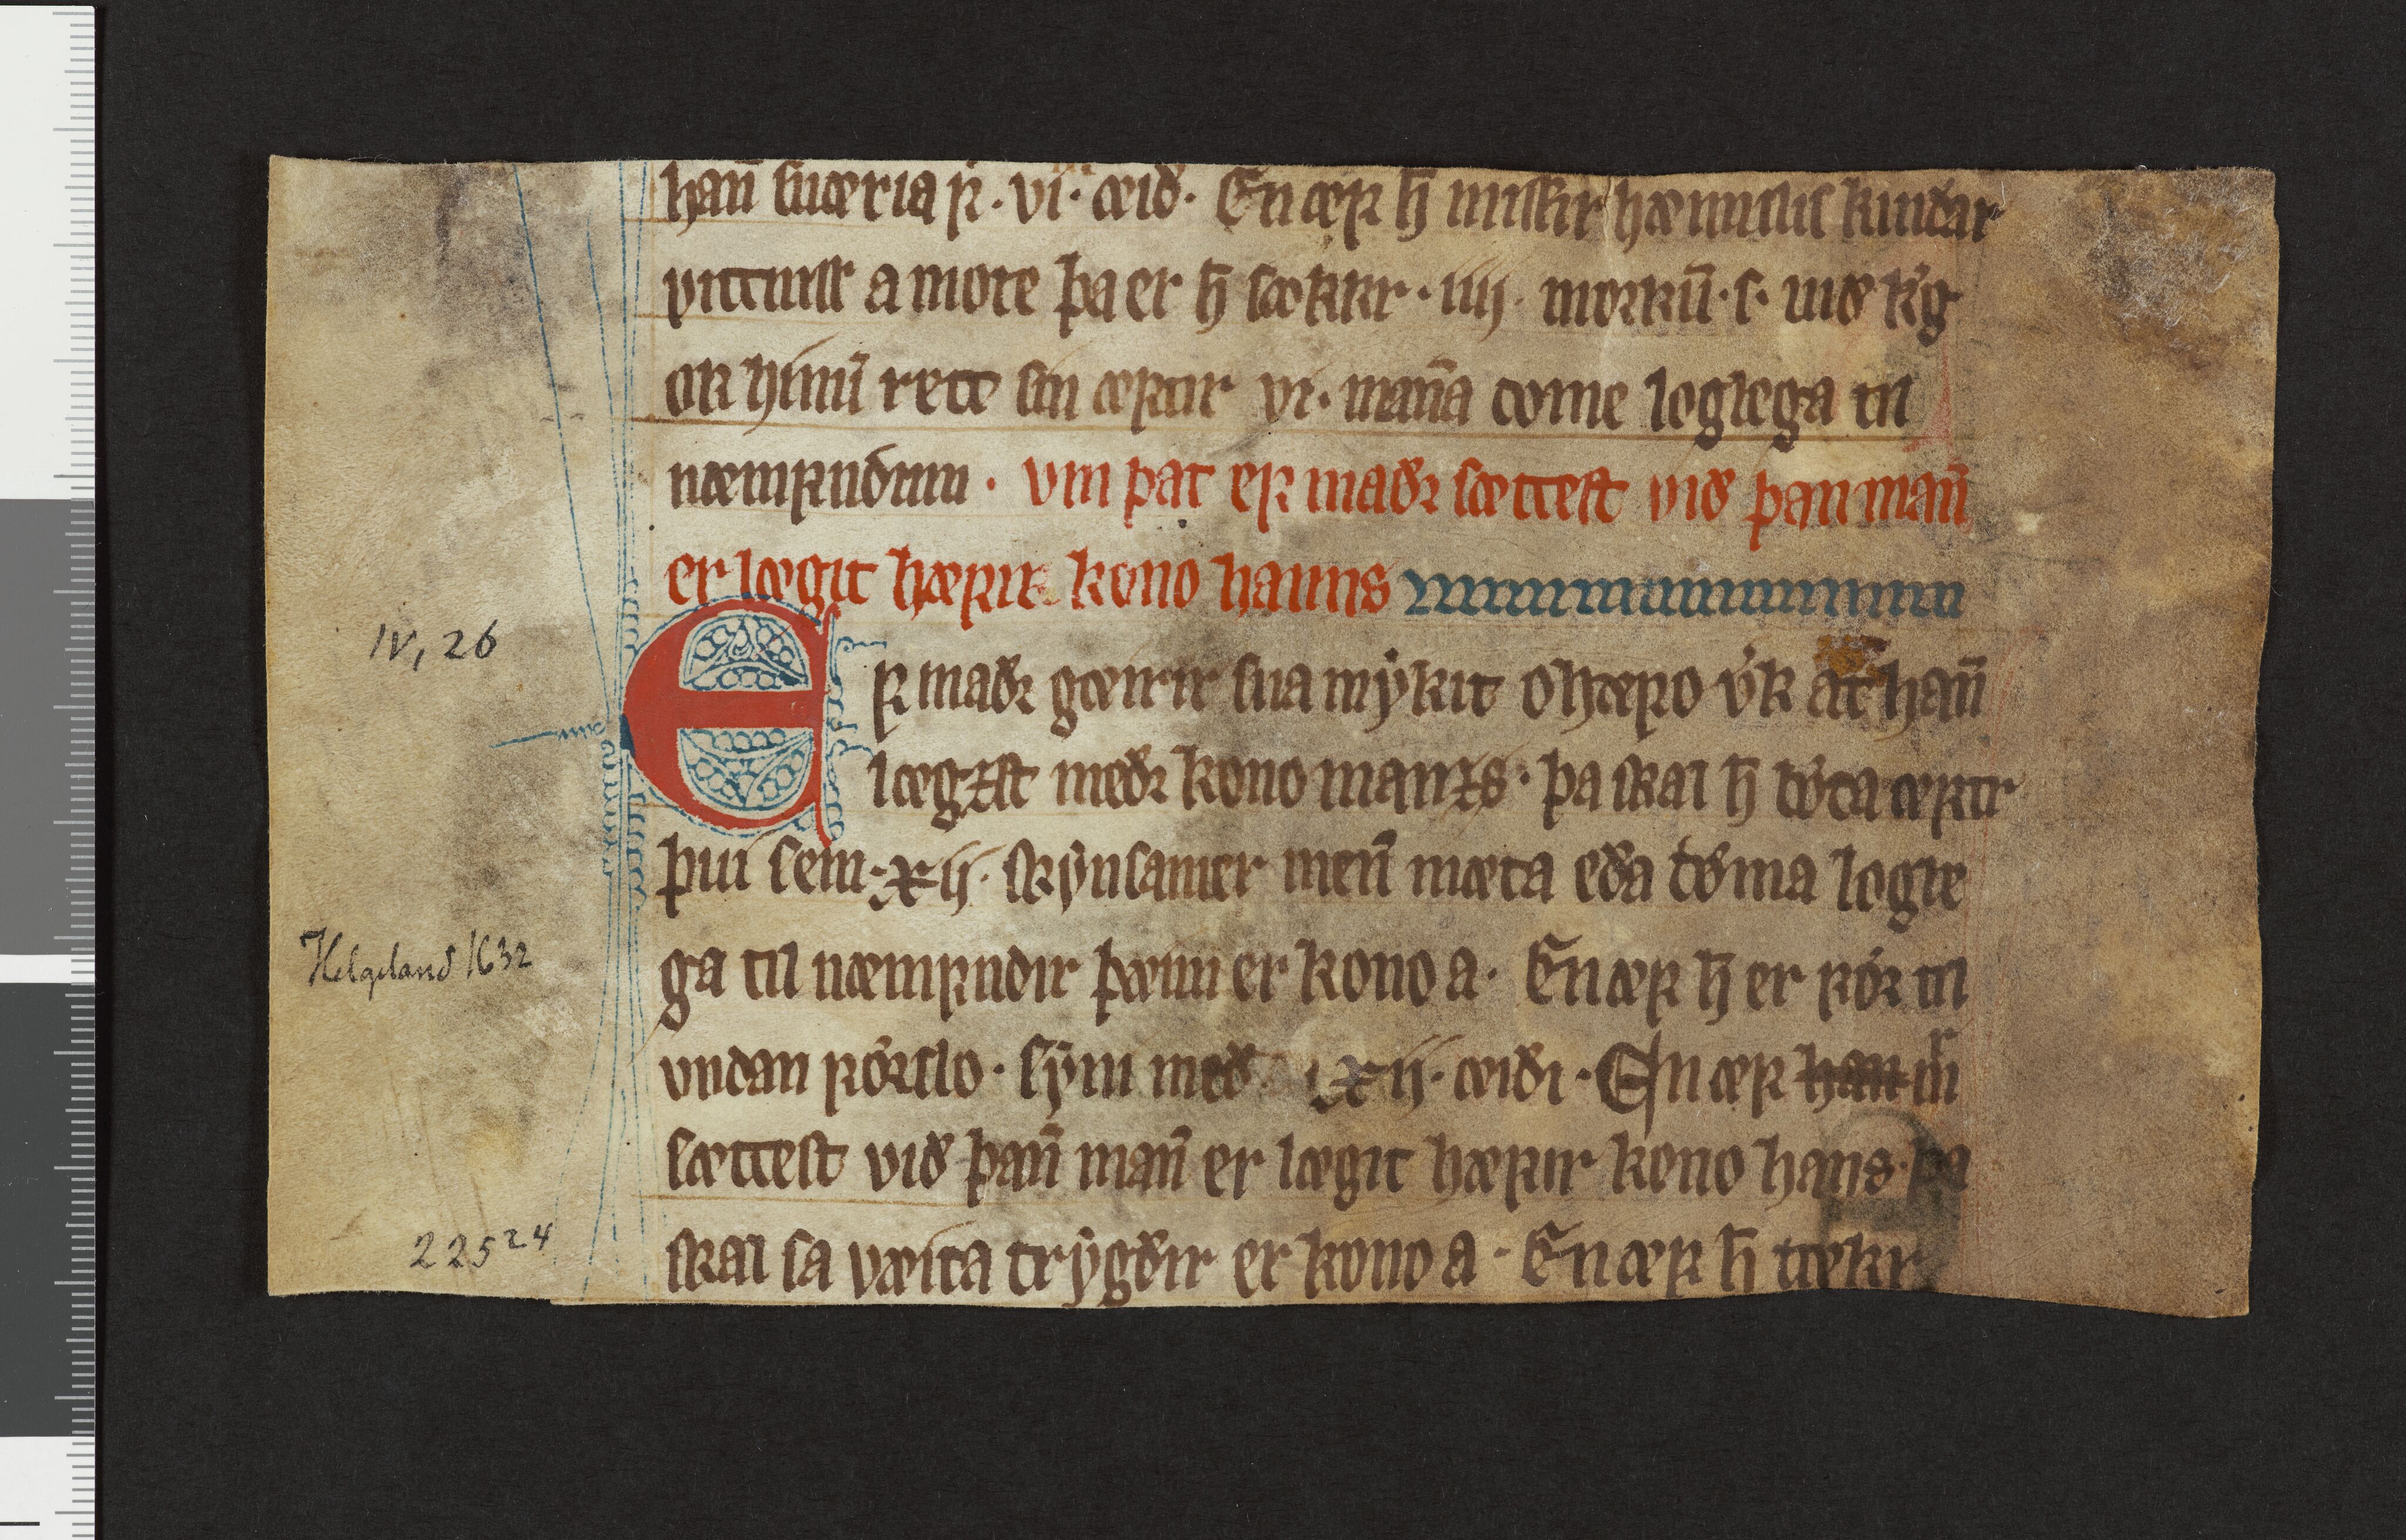 han̄ suæria ꝼ. vi. æið. En æꝼ h̄ misfir hæimslis kuiðar
vittnis a mote þa er h̄ sækkr. iiij. morkū. s. uið k̓g
ok hinū rett sin æftir vi. man̄a dome loglega til
næmfndum. vm þat eꝼ maðꝛ sættest við þan man̄
er lægit hæfir kono hanns
Eꝼ maðꝛ gæirir sua mykit ohæfo v́k at han̄
lægꝫst meðꝛ kono manꝫs. þa skal h̄ bǿta æftir
þui sem. xij. skynsamer men̄ mæta eða dǿma logle
ga til næmfndir þæim er kono a. En æꝼ h̄ er fǿꝛ til
vndan fǿrslo. syni með lxij. æiði. En æꝼ han m̄
sættest við þan̄ man̄ er lægit hæfir kono hans. þa
skal sa væita trygðir er kono a. En æꝼ h̄ tækr
IV, 26
Helgeland 1632
225²⁴